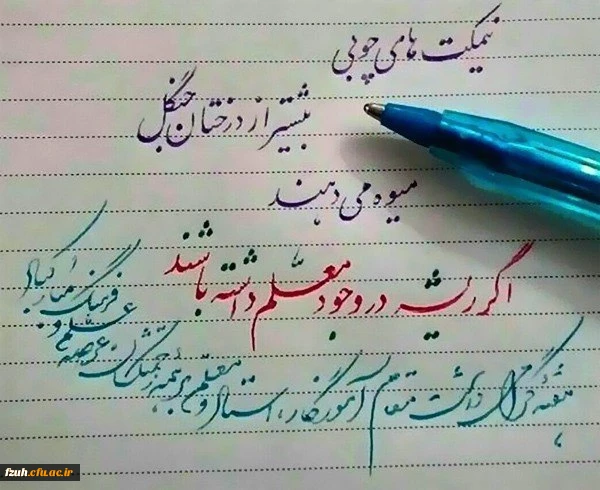 نیمکت های چوبی
بیشتر از درختان جنگل
میوه می دهند
اگر ریشه در وجود معلّم داشته باشند
هفتهٔ گرامی داشت مقام آموزگار، استاد و معلّم بر همه زحمتکشان عرصه
علم و
فرهنگ مبارکباد
fzuh.cfu.ac.ir